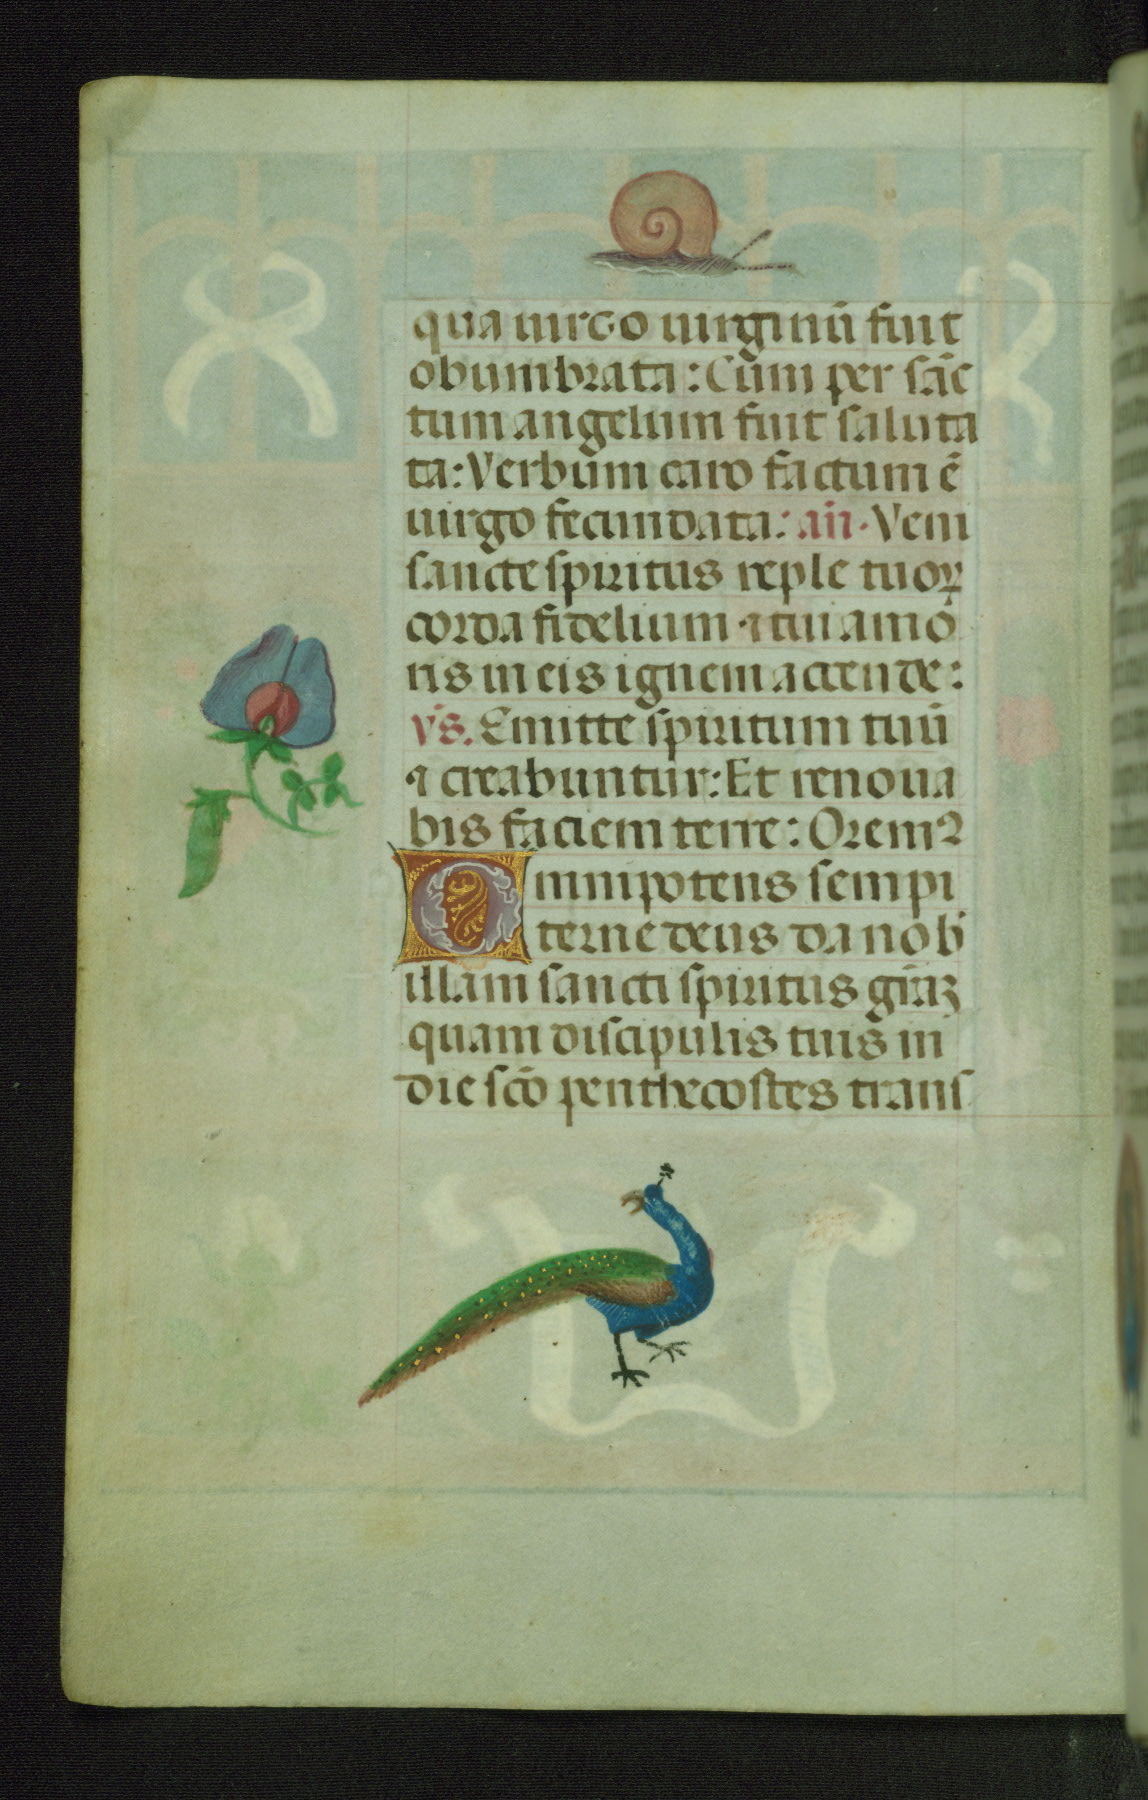 qua uirgo uirginũ fuit
obumbrata: Cum per sãc
tum angelum fuit saluta
ta: Verbum caro factum ẽ
uirgo fecundata: añ. Veni
sancte spiritus reple tuoꝝ
corda fidelium ⁊ tui amo
ris in eis ignem accende:
v̄s. Emitte spiritum tuũ
⁊ creabuntur: Et renoua
bis faciem terre: Oremꝰ
Omnipotens sempi
terne deus da nob̃
illam sancti spiritus grãꝫ
quam discipulis tuis in
die scõ penthecostes trans